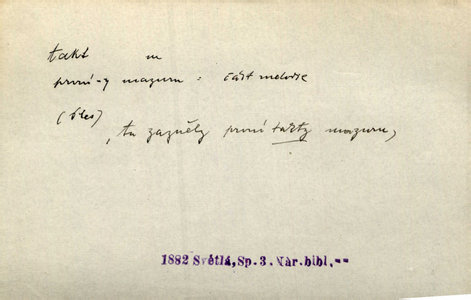 takt m
první-y mazuru : část melodie
(Ples)
, tu zazněly první takty mazuru,
1882 Světlá, Sp. 3. Nár. bibl. --